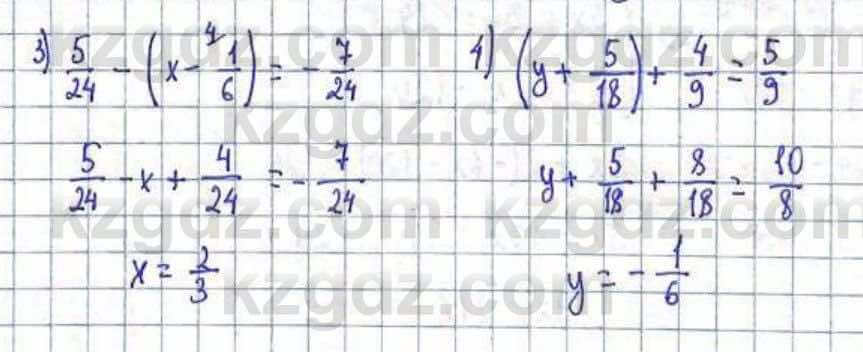 3) 5/24 - (x - 1/6)⁴ = - 7/24
5/24 - x + 4/24 = - 7/24
x = 2/3
4) (y + 5/18) + 4/9 = 5/9
y + 5/18 + 8/18 = 10/8
y = - 1/6
kzgdz.com kzgdz.com
kzgdz.com
kzgdz.com kzgdz.com
kzgdz.com